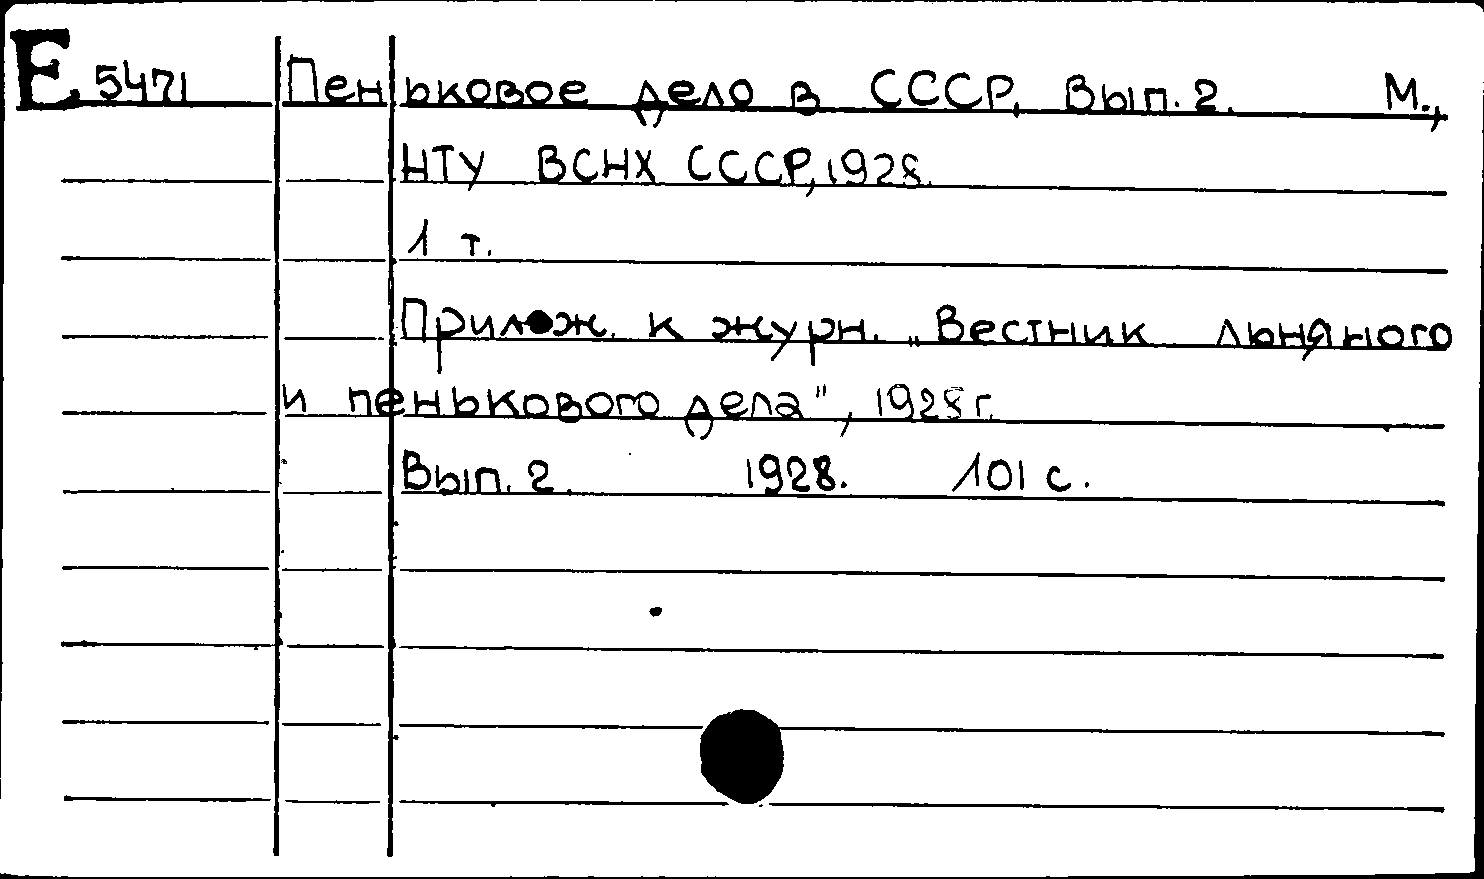 Е 5471 Пеньковое дело в СССР, Вып. 2. М.,
НТУ ВСНХ СССР, 1928.
1 т.
Прилож. к журн. „Вестник льняного
и пенькового дела", 1928 г.
Вып. 2. 1928. 101 с.